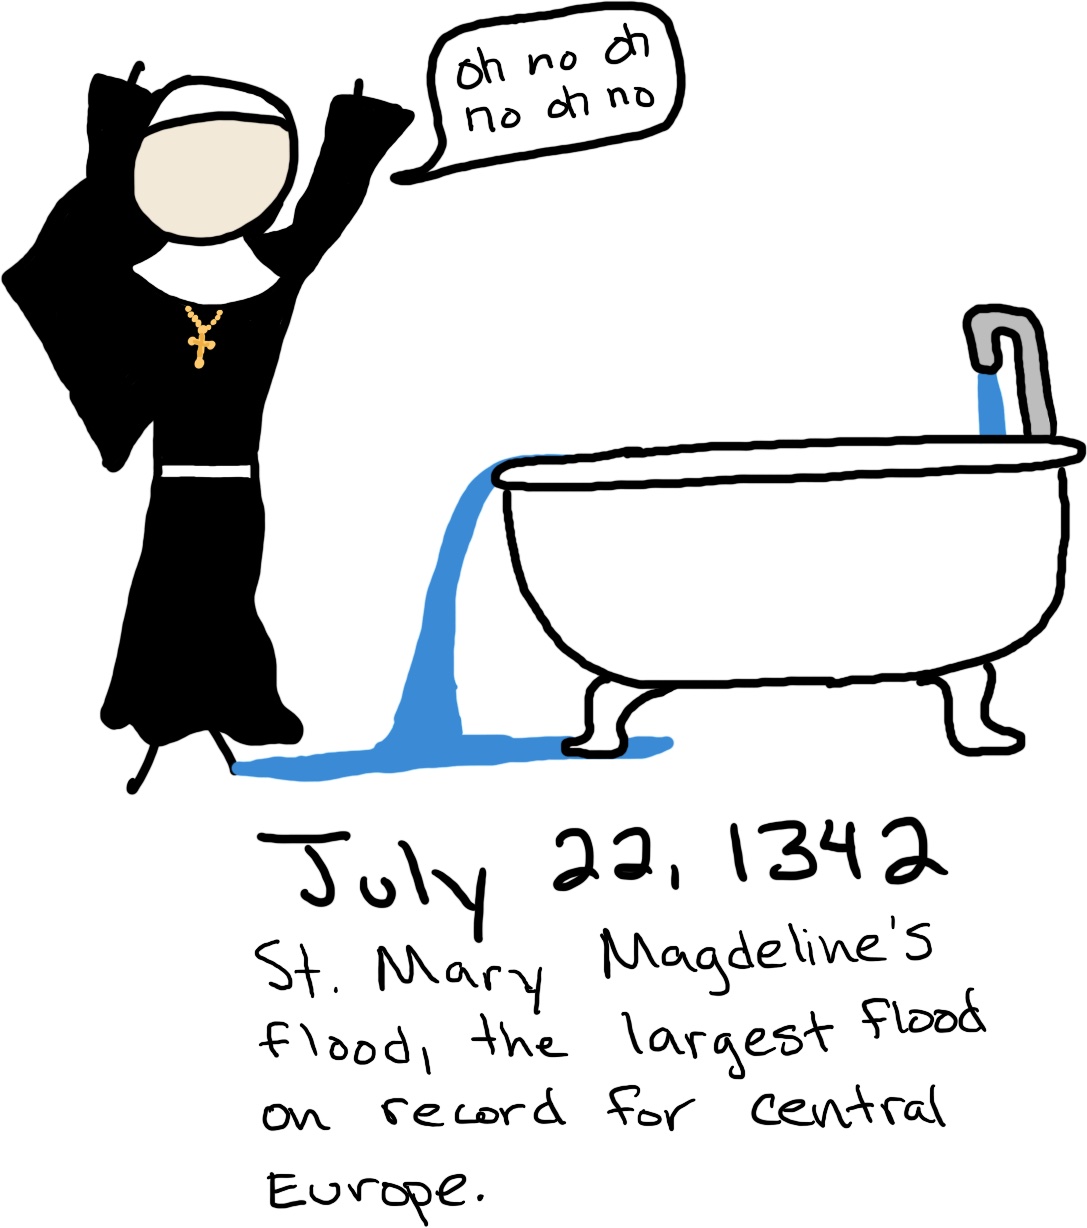 oh no oh
no oh no
July 22, 1342
St. Mary Magdeline's
flood, the largest flood
on record for central
Europe.